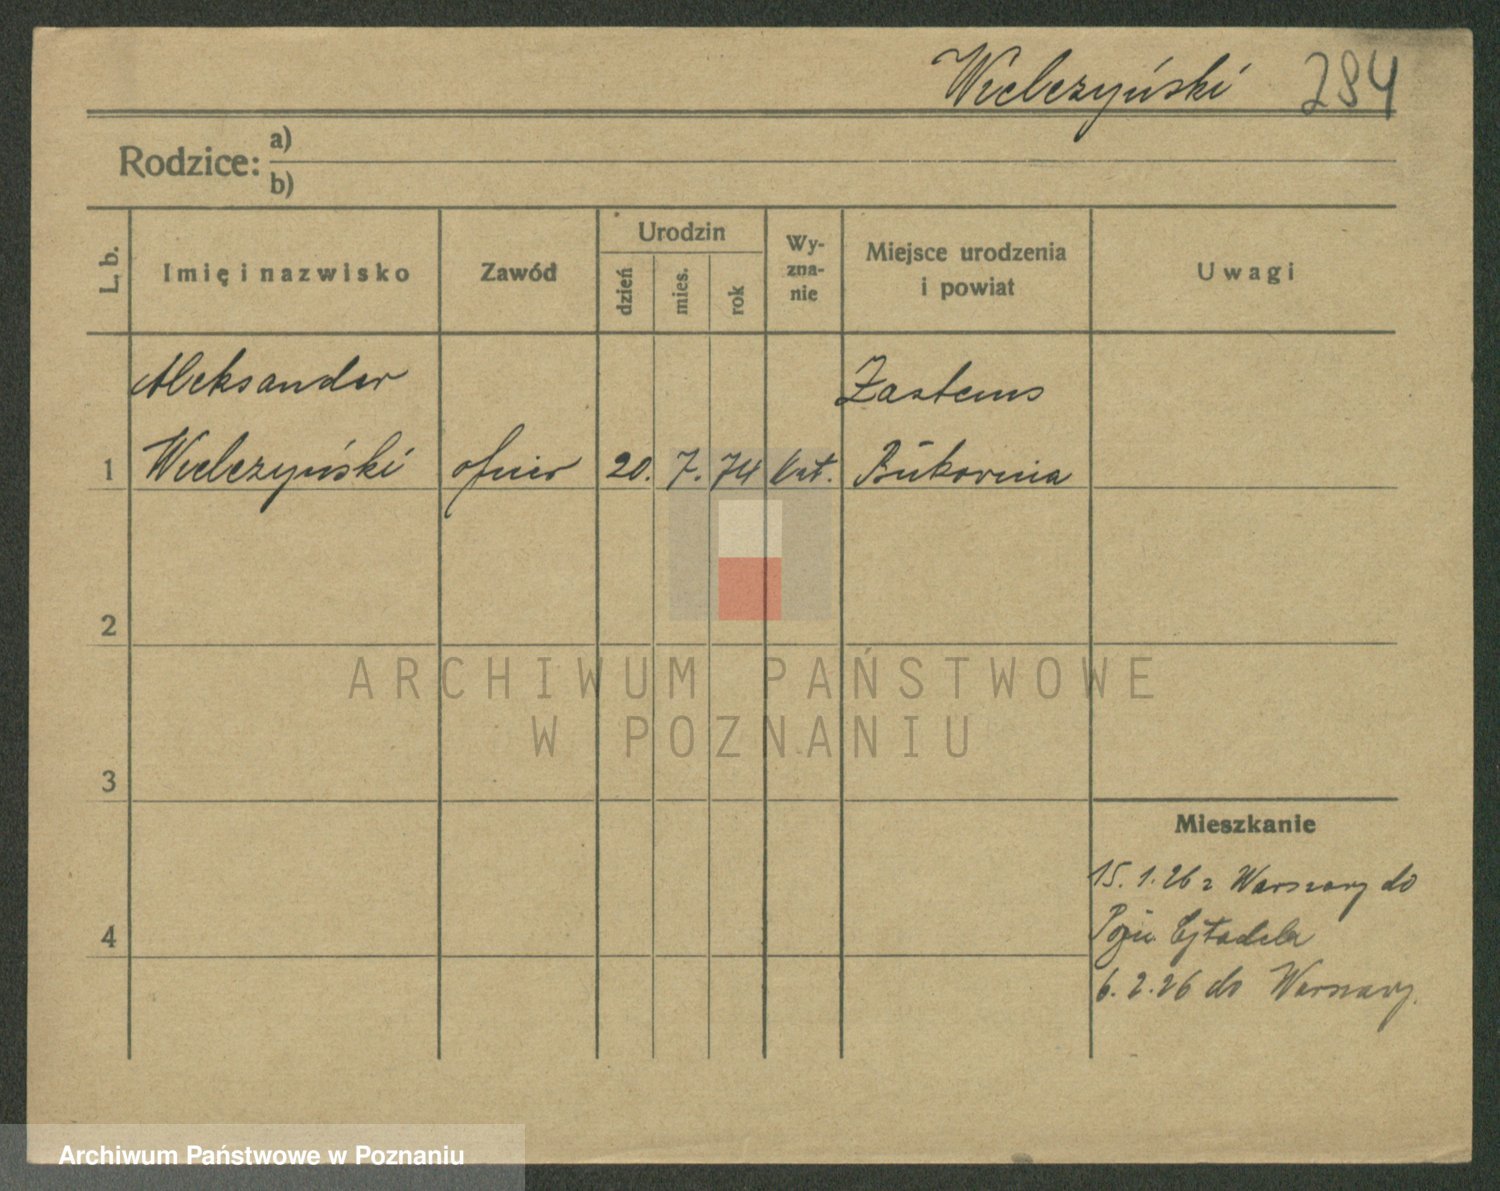 Wielczyński 284
Rodzice: a)
b)
L. b. Imię i nazwisko Zawód Urodzin dzień mies. rok Wy-zna-nie Miejsce urodzenia i powiat Uwagi
Aleksander Zastawna
1 Wielczyński oficer 20. 7. 74 kat. Bukowina
2
ARCHIWUM PAŃSTWOWE
W POZNANIU
3
Mieszkanie
15. 1. 26 z Warszawy do
4 Pozn. Cytadela
6. 2. 26 do Warszawy.
Archiwum Państwowe w Poznaniu